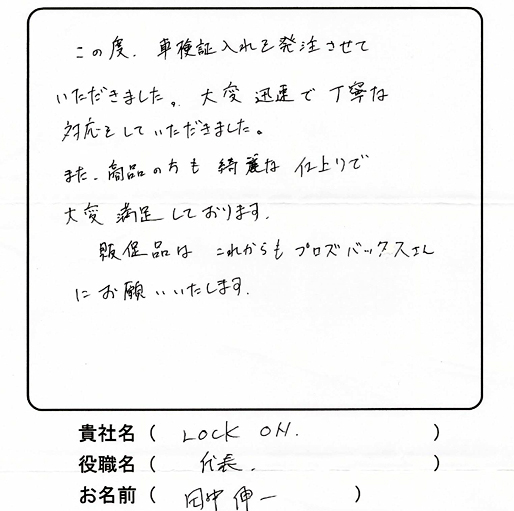 この度、車検証入れを発注させて
いただきました。大変 迅速で 丁寧な
対応をしていただきました。
また、商品の方も 綺麗な 仕上りで
大変 満足しております。
販促品は これからも プロズバックスさん
にお願いいたします。
貴社名（ LOCK ON. ）
役職名（ 代表. ）
お名前（ 田中伸一 ）